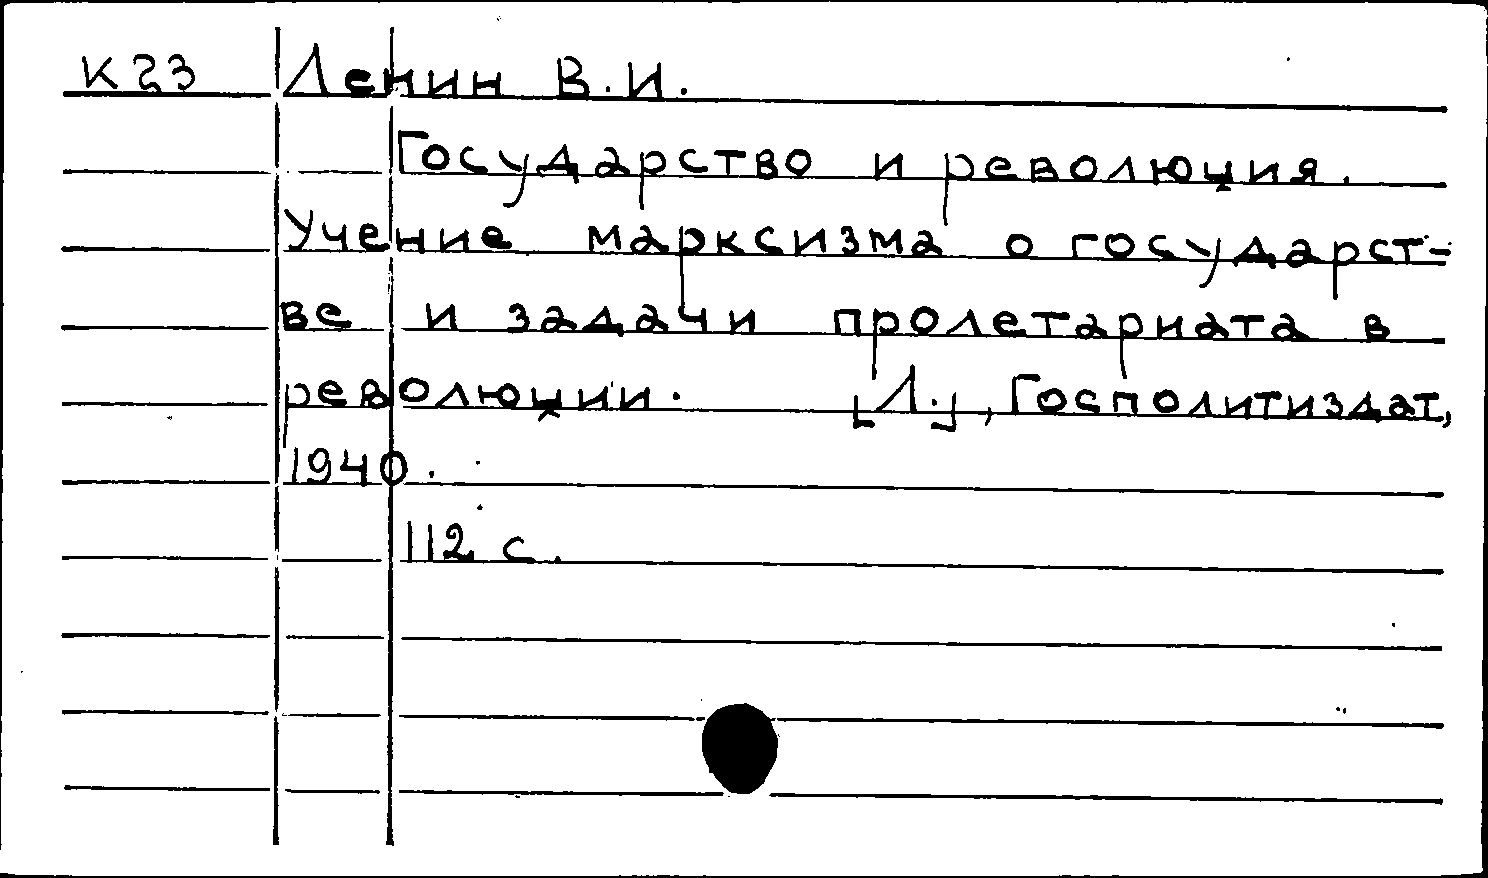 К23 Ленин В.И.
Государство и революция.
Учение марксизма о государст-
ве и задачи пролетариата в
революции. [Л.], Госполитиздат,
1940.
112 с.